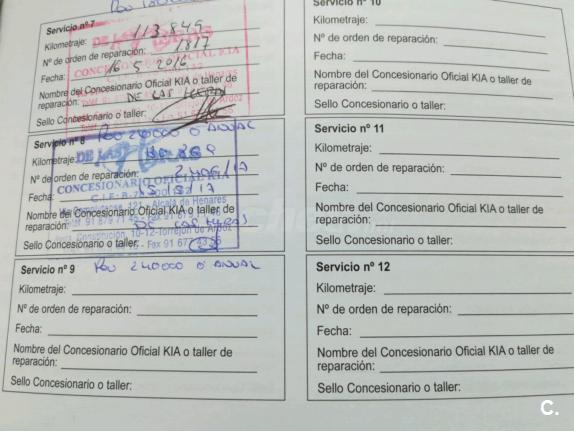 Servicio nº 7
Kilometraje: 113.849
Nº de orden de reparación: 1817
Fecha: 16-5-2016
Nombre del Concesionario Oficial KIA o taller de
reparación: DE LAS HERAS
Sello Concesionario o taller:
Servicio nº 8 POR 210000 O ANUAL
Kilometraje:
DE LAS
Nº de orden de reparación:
CONCESIONARIO OFICIAL KIA
Fecha:
Alcalá de Henares
Nombre del Concesionario Oficial KIA o taller de
reparación: DE LAS HERAS
Constitución, 10-12-Torrejón de Ardoz
Sello Concesionario o taller:
Servicio nº 9 POR 240000 O ANUAL
Kilometraje:
Nº de orden de reparación:
Fecha:
Nombre del Concesionario Oficial KIA o taller de
reparación:
Sello Concesionario o taller:
Servicio nº 10
Kilometraje:
Nº de orden de reparación:
Fecha:
Nombre del Concesionario Oficial KIA o taller de
reparación:
Sello Concesionario o taller:
Servicio nº 11
Kilometraje:
Nº de orden de reparación:
Fecha:
Nombre del Concesionario Oficial KIA o taller de
reparación:
Sello Concesionario o taller:
Servicio nº 12
Kilometraje:
Nº de orden de reparación:
Fecha:
Nombre del Concesionario Oficial KIA o taller de
reparación:
Sello Concesionario o taller:
C.